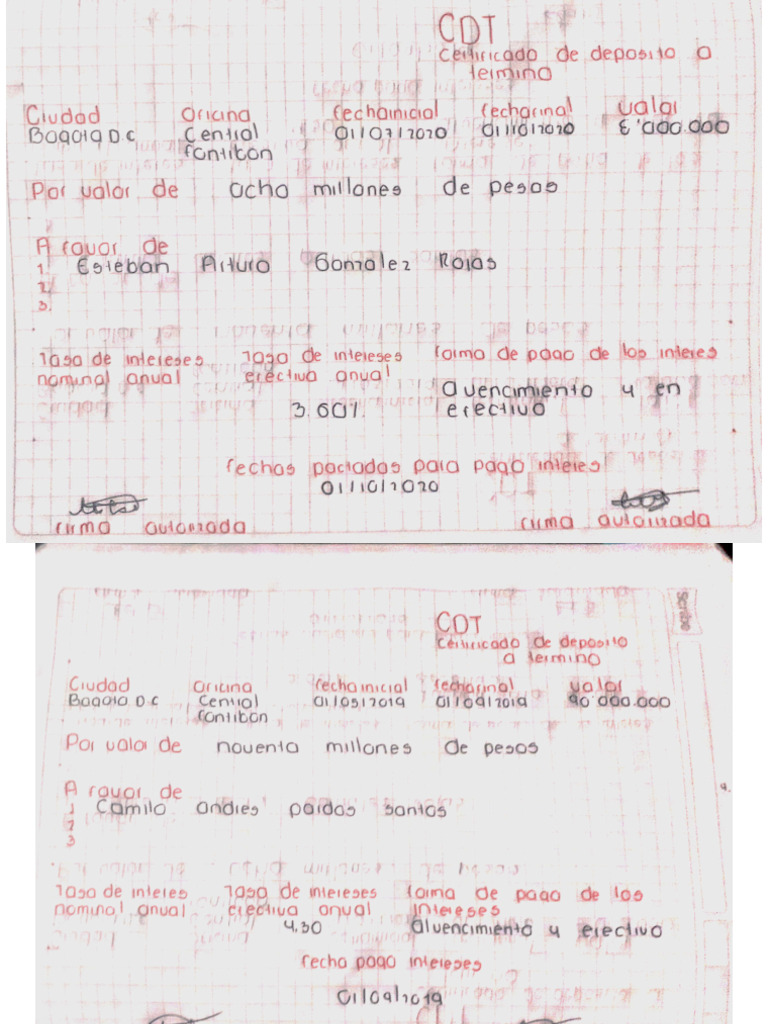 CDT
Certificado de deposito a
termino
Ciudad Oficina fecha inicial fecha final valor
Bogota D.C Central 01/07/2020 01/10/2020 8'000.000
fontibon
Por valor de ocho millones de pesos
A favor de
1. Esteban Arturo Gonzalez Rojas
2.
3.
Tasa de intereses Tasa de intereses forma de pago de los interes
nominal anual efectiva anual a vencimiento y en
3.60% efectivo
fechas pactadas para pago interes
01/10/2020
firma autorizada firma autorizada
Scribe
CDT
Certificado de deposito
a termino
Ciudad Oficina fecha inicial fecha final valor
Bogota D.C Central 01/05/2019 01/09/2019 90'000.000
fontibon
Por valor de noventa millones de pesos
A favor de
1 Camilo andres pardas santos
2
3
Tasa de interes Tasa de intereses forma de pago de los
nominal anual efectiva anual intereses
4.30 al vencimiento y efectivo
fecha pago intereses
01/09/2019